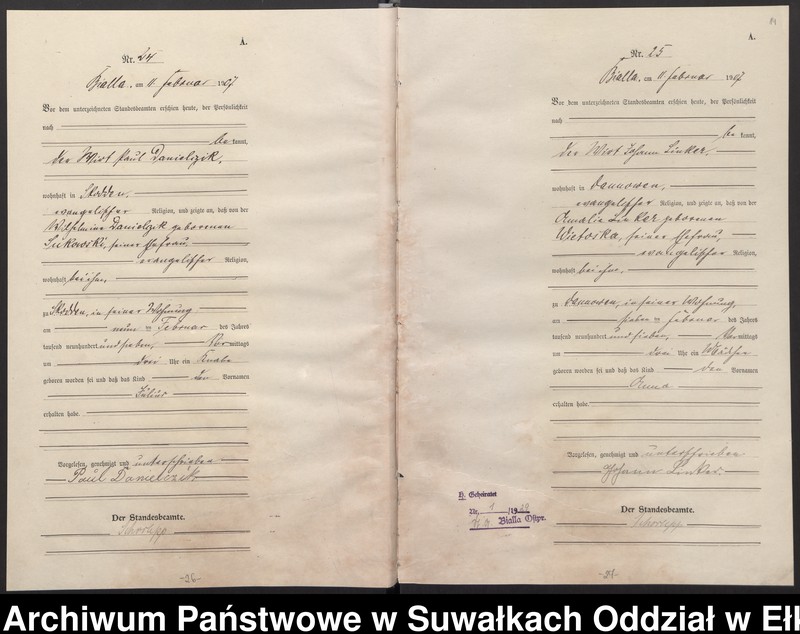 A.
Nr. 24
Bialla, am 11. Februar 1907
Vor dem unterzeichneten Standesbeamten erschien heute, der Persönlichkeit
nach
be kannt,
der Wirt Paul Danielzik,
wohnhaft in Skodden,
evangelischer Religion, und zeigte an, daß von der
Wilhelmine Danielzik geborenen
Sukowski, seiner Ehefrau,
evangelischer Religion,
wohnhaft bei ihm,
zu Skodden, in seiner Wohnung
am neun ten Februar des Jahres
tausend neunhundert und sieben, Vormittags
um drei Uhr ein Knabe
geboren worden sei und daß das Kind den Vornamen
Julius
erhalten habe.
Vorgelesen, genehmigt und unterschrieben
Paul Danielzik
Der Standesbeamte.
-26-
84
A.
Nr. 25
Bialla, am 11 Februar 1907
Vor dem unterzeichneten Standesbeamten erschien heute, der Persönlichkeit
nach
be kannt,
der Wirt Johann Linker,
wohnhaft in Dannowen,
evangelischer Religion, und zeigte an, daß von der
Amalie Linker geborenen
seiner Ehefrau,
evangelischer Religion,
wohnhaft bei ihm,
zu Dannowen, in seiner Wohnung,
am ten Februar des Jahres
tausend neunhundert und sieben, mittags
um Uhr ein Mädchen
geboren worden sei und daß das Kind den Vornamen
Anna
erhalten habe.
Vorgelesen, genehmigt und unterschrieben
Johann Linker.
Der Standesbeamte.
Geheiratet
Nr. 1 /19
Bialla Ostpr.
-27-
Archiwum Państwowe w Suwałkach Oddział w Ełk